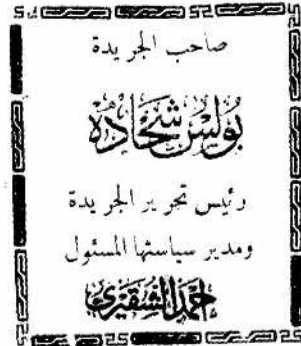 صاحب الجريدة
بولس شحاده
رئيس تحرير الجريدة
ومدير سياستها المسئول
احمد الشقيري